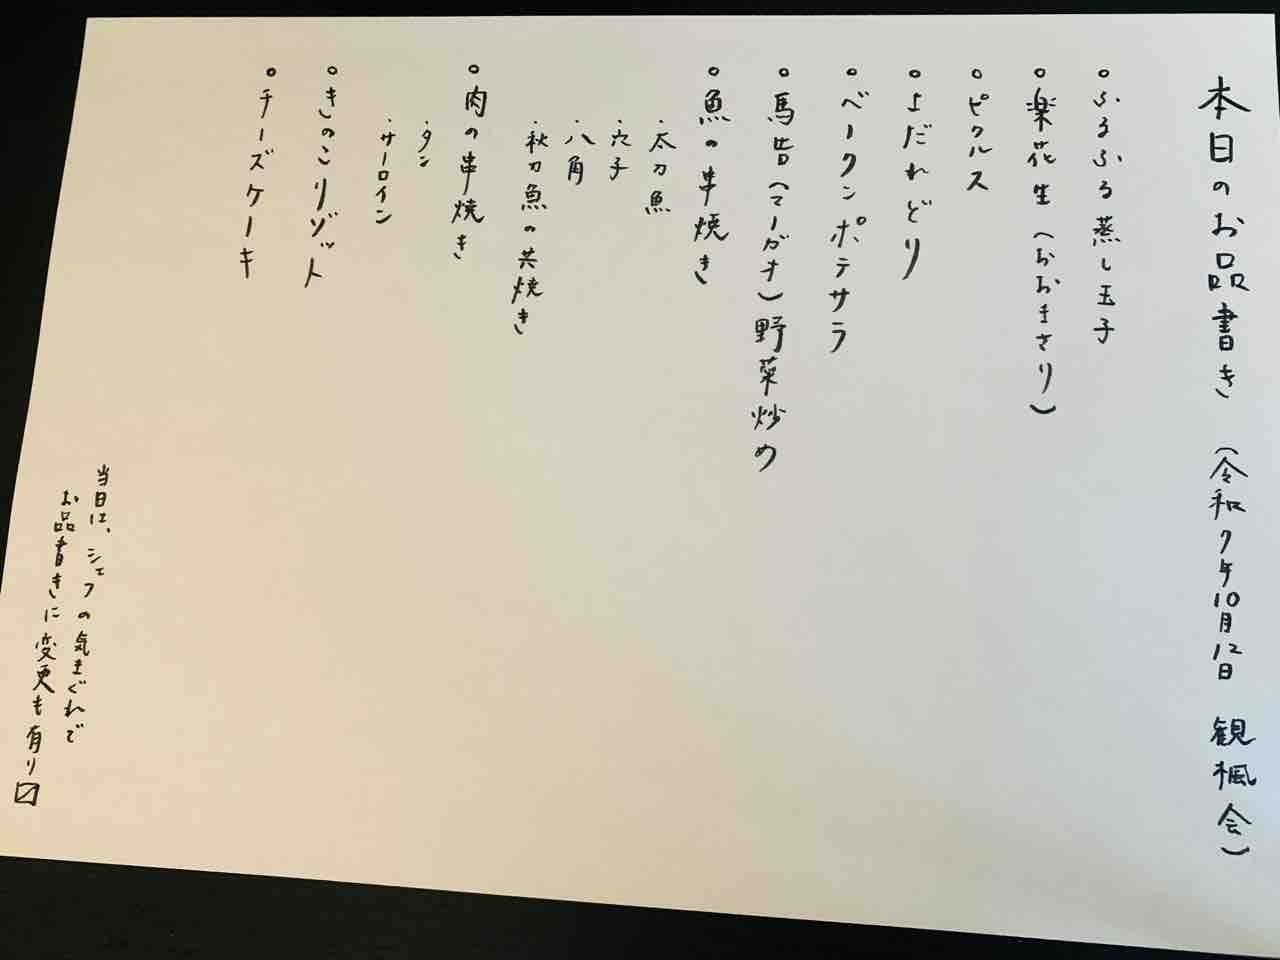 本日のお品書き (令和7年10月12日 観楓会)
ふるふる蒸し玉子
楽花生(おおまさり)
ピクルス
よだれどり
ベークンポテサラ
馬告(マーガオ)野菜炒め
魚の串焼き
・太刀魚
・穴子
・八角
・秋刀魚の共焼き
肉の串焼き
・タン
・サーロイン
きのこリゾット
チーズケーキ
当日は、シェフの気まぐれで
お品書きに変更も有り〼